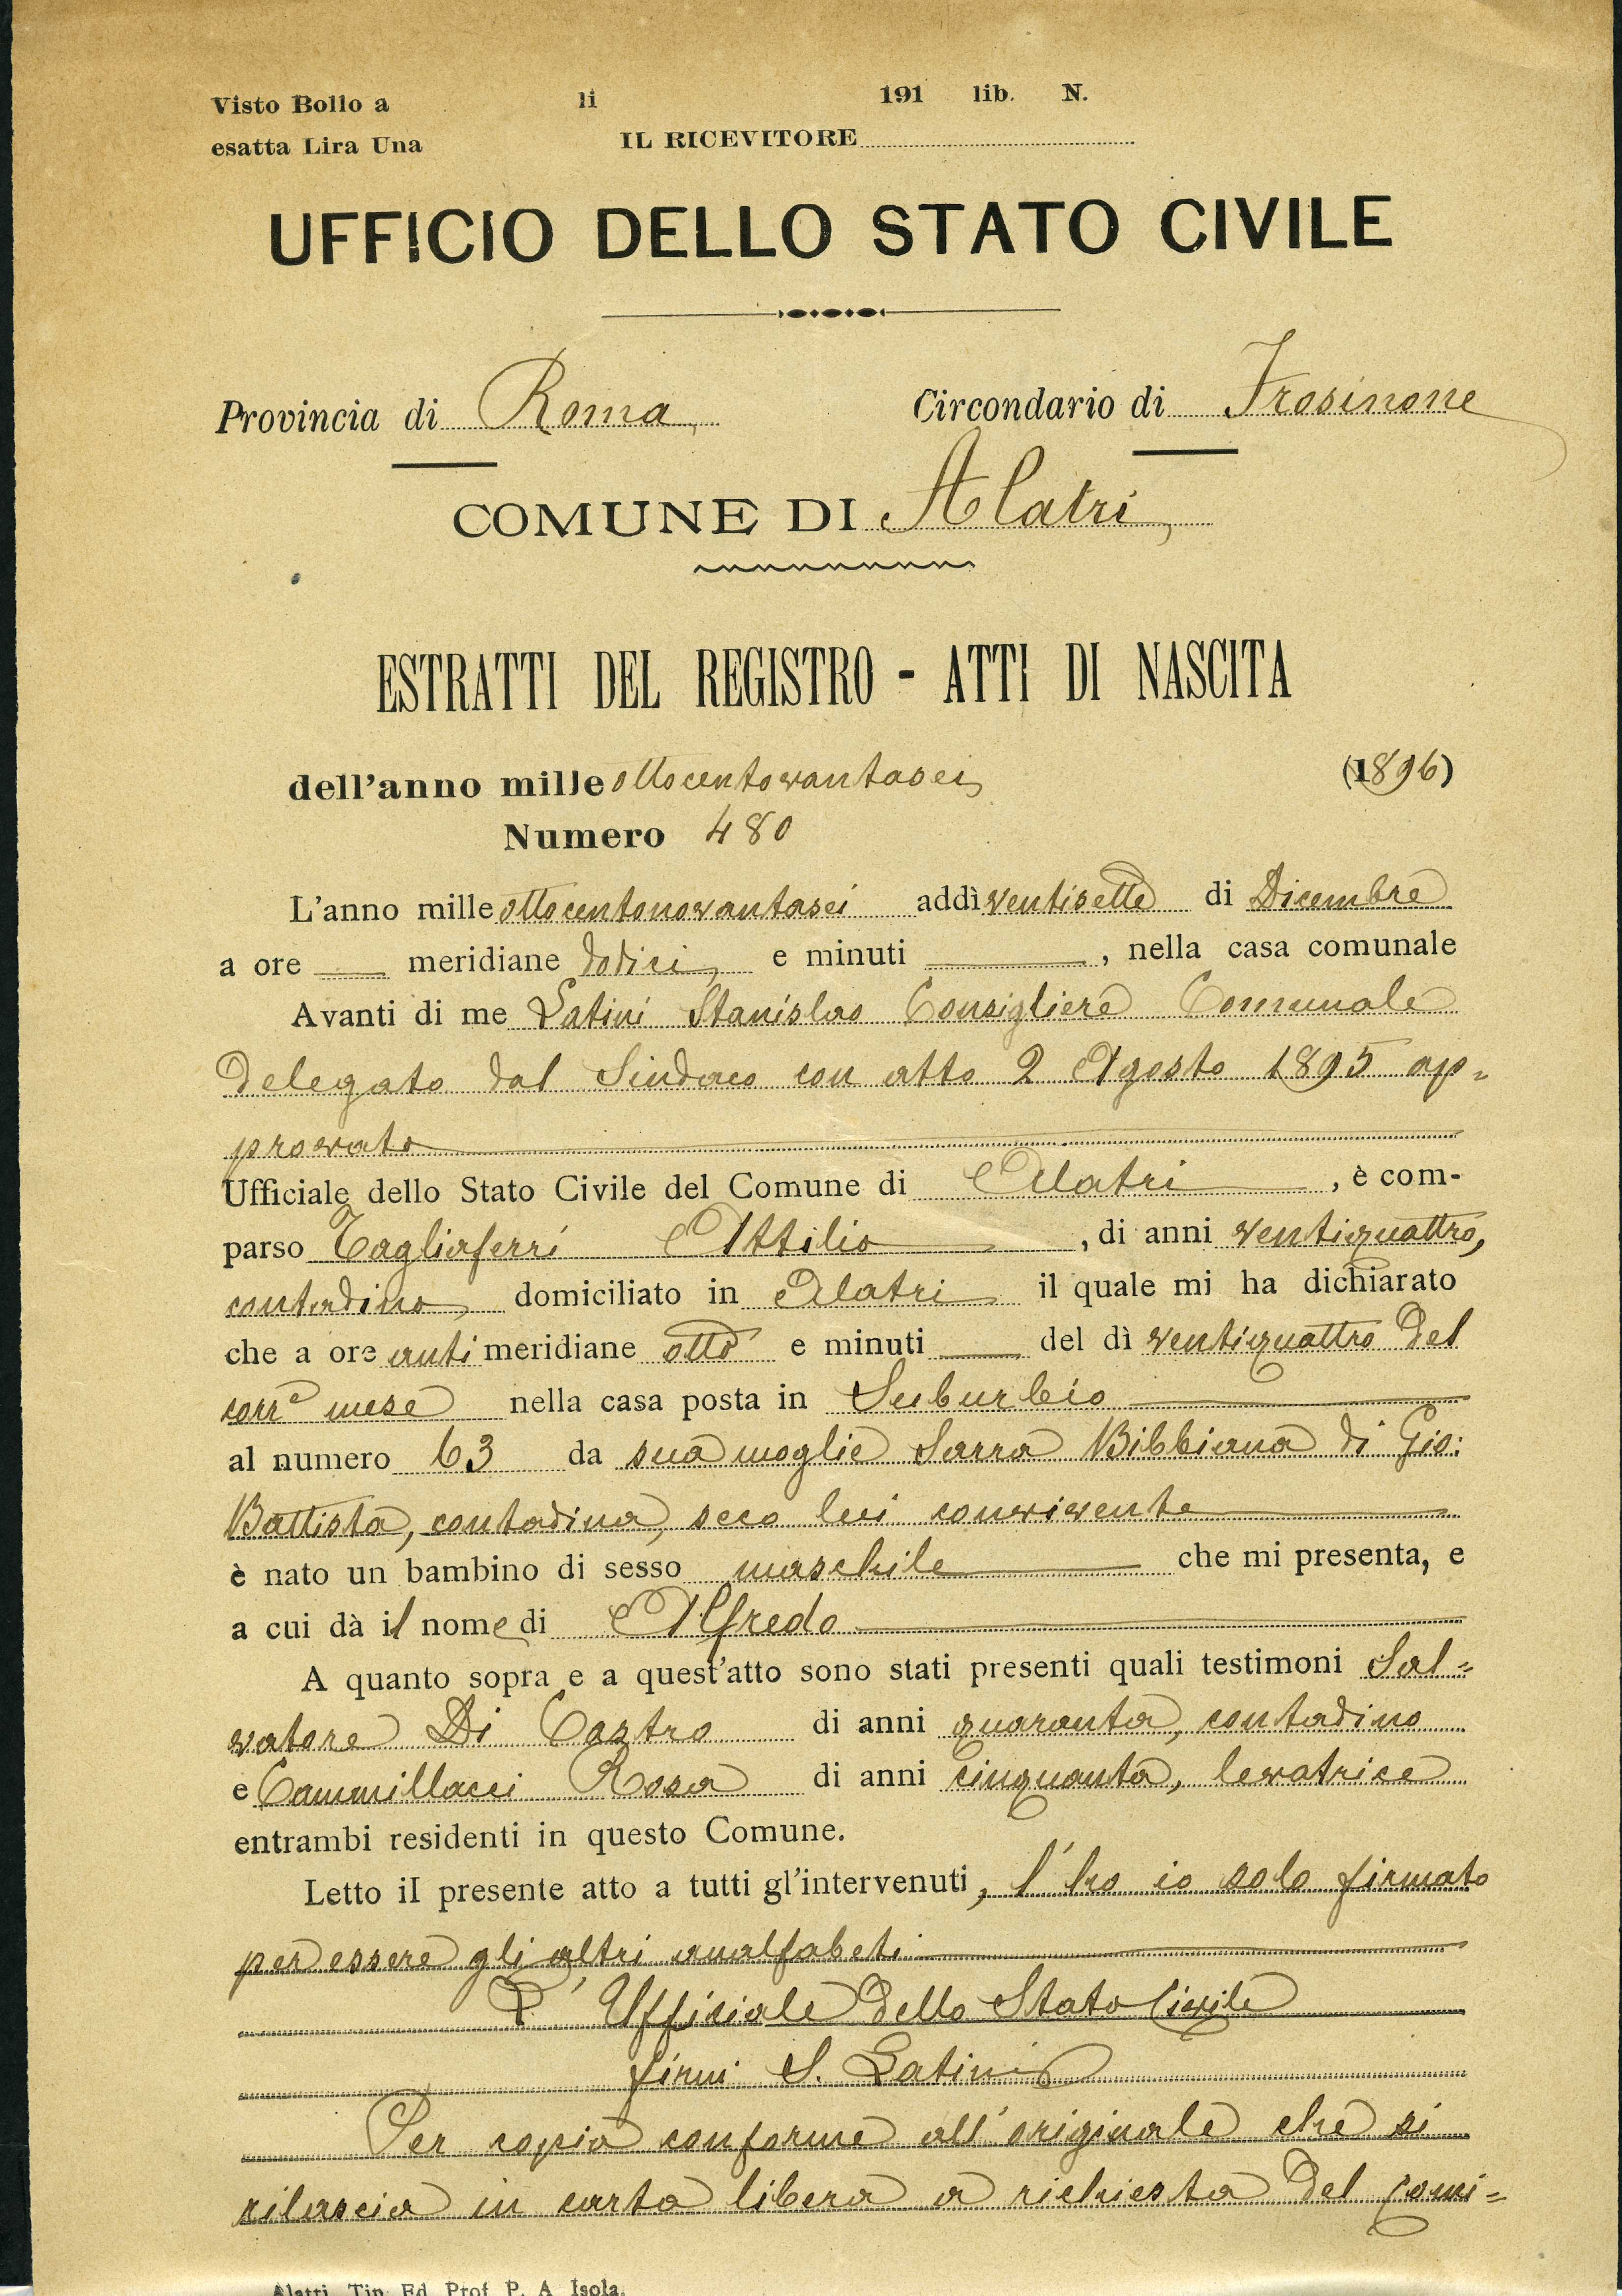 Visto Bollo a li 191 lib. N.
esatta Lira Una IL RICEVITORE
UFFICIO DELLO STATO CIVILE
Provincia di Roma Circondario di Frosinone
COMUNE DI Alatri
ESTRATTI DEL REGISTRO - ATTI DI NASCITA
dell'anno mille ottocentovantasei (1896)
Numero 480
L'anno mille ottocentonovantasei addì ventisette di Dicembre
a ore meridiane dodici, e minuti , nella casa comunale
Avanti di me Latini Stanislao Consigliere Comunale
delegato dal Sindaco con atto 2 Agosto 1895 ap=
provato
Ufficiale dello Stato Civile del Comune di Alatri , è com-
parso Tagliaferri Attilio , di anni ventiquattro,
contadino, domiciliato in Alatri il quale mi ha dichiarato
che a ore antimeridiane otto e minuti del dì ventiquattro del
corre mese nella casa posta in Suburbio
al numero 63 da sua moglie Sarra Bibbiana di Gio:
Battista, contadina, seco lui convivente
è nato un bambino di sesso maschile che mi presenta, e
a cui dà il nome di Alfredo
A quanto sopra e a quest'atto sono stati presenti quali testimoni Sal=
vatore Di Castro di anni quaranta, contadino
e Cammillacci Rosa di anni cinquanta, levatrice
entrambi residenti in questo Comune.
Letto il presente atto a tutti gl'intervenuti, l'ho io solo firmato
per essere gli altri analfabeti
L'Uffiziale dello Stato Civile
firm: S. Latini
Per copia conforme all'originale che si
rilascia in carta libera a richiesta del Comi=
Alatri, Tip. Ed. Prof. P. A. Isola.